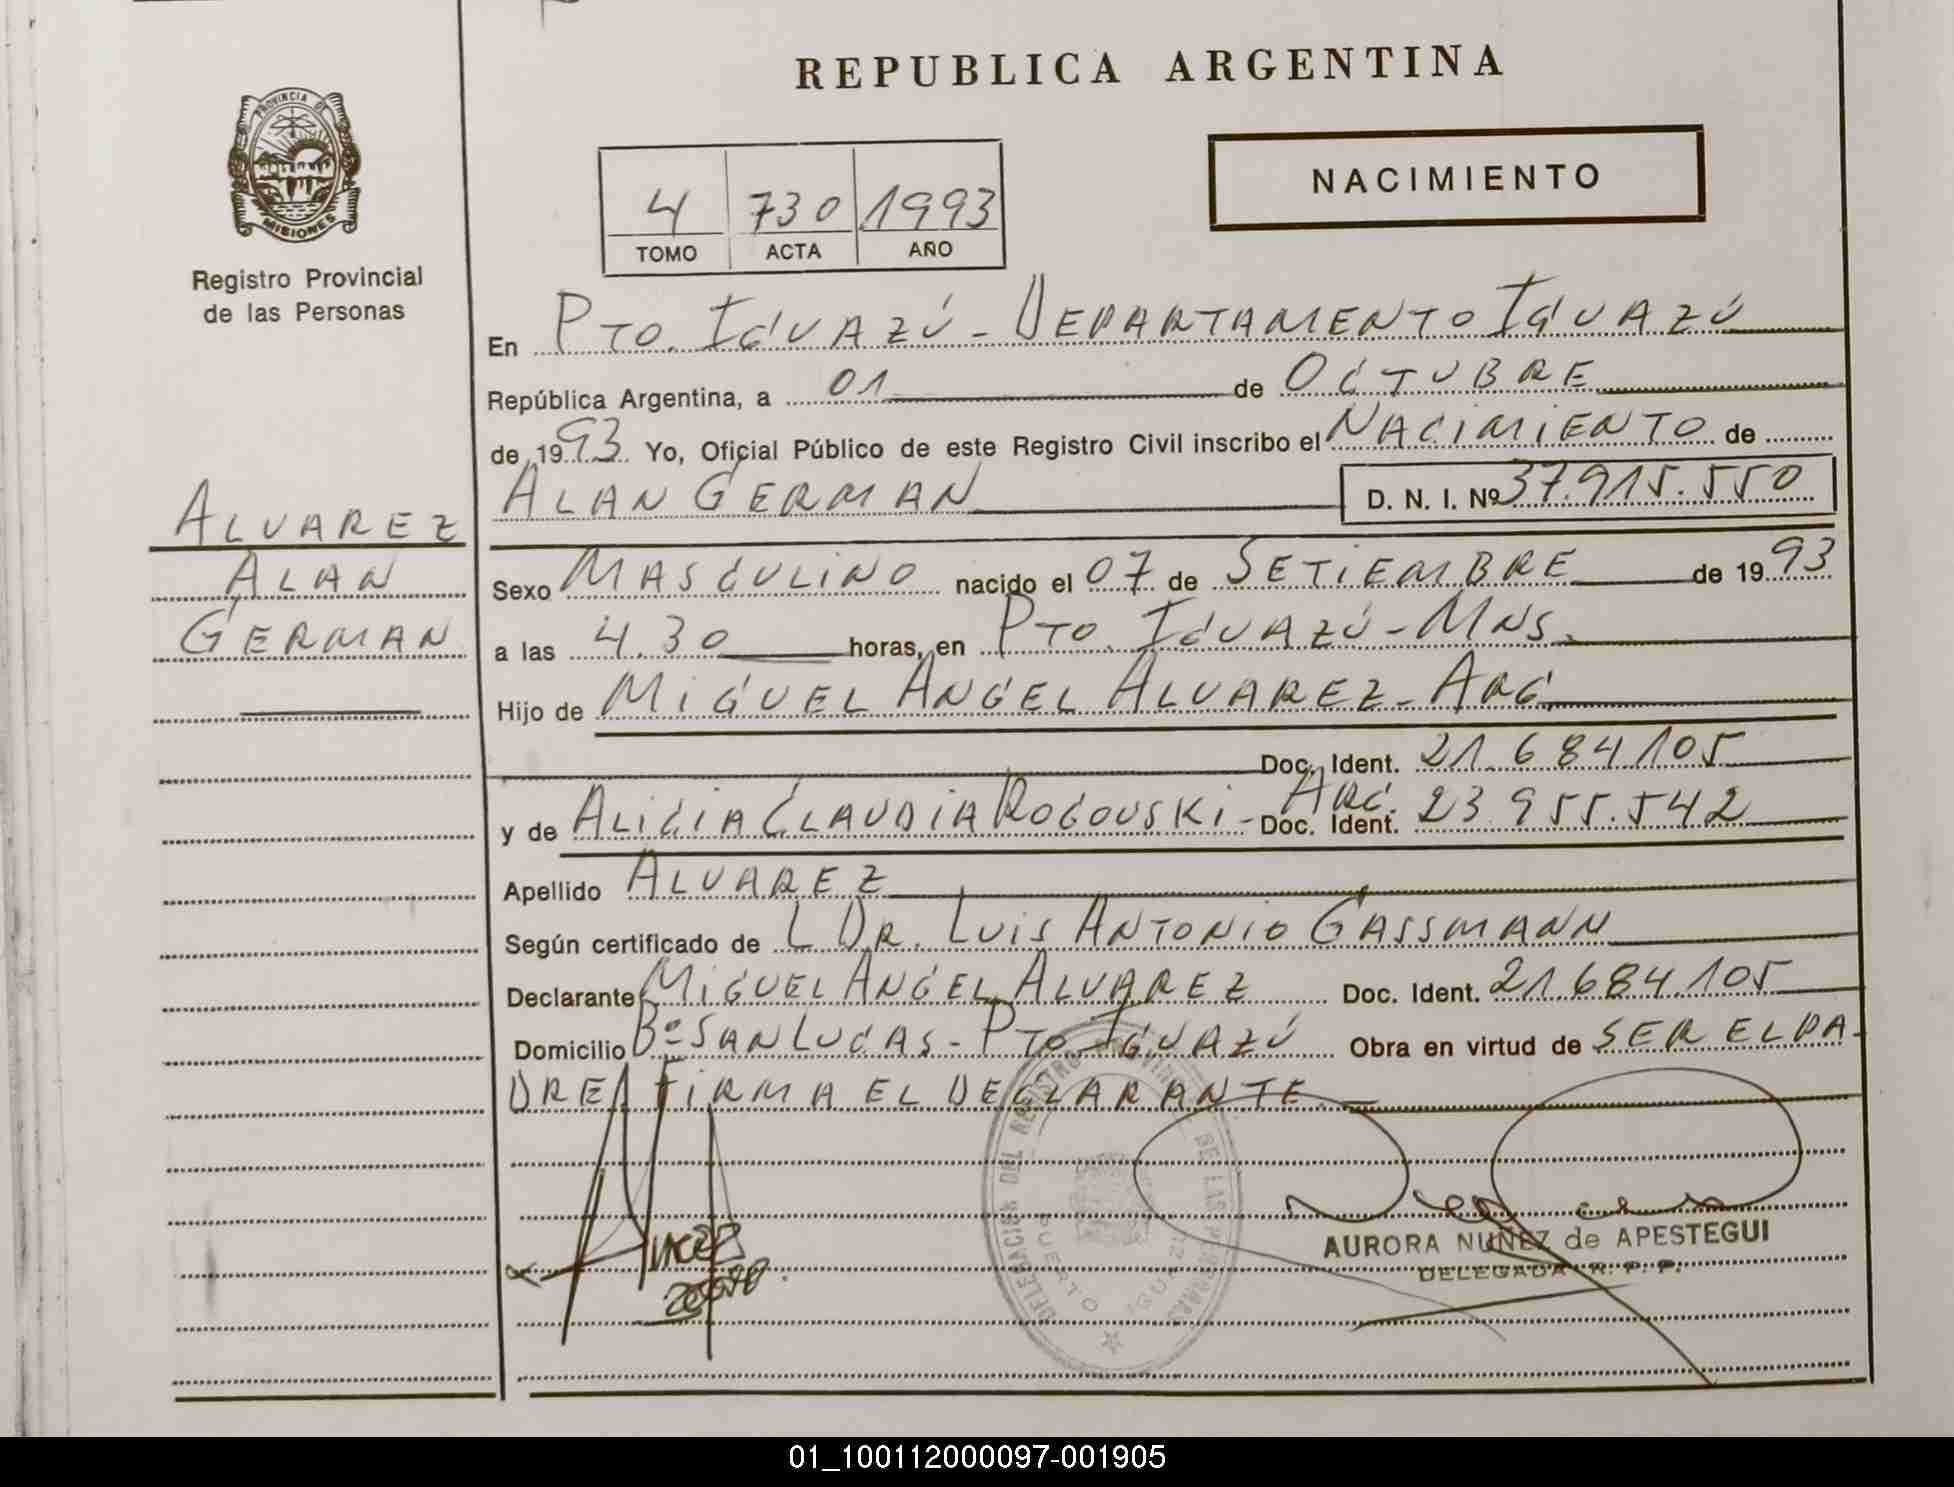 REPUBLICA ARGENTINA
PROVINCIA DE
MISIONES
Registro Provincial
de las Personas
NACIMIENTO
4 730 1993
TOMO ACTA AÑO
En PTO. IGUAZÚ - DEPARTAMENTO IGUAZÚ
República Argentina, a 01 de OCTUBRE
de 1993 Yo, Oficial Público de este Registro Civil inscribo el NACIMIENTO de
ALAN GERMAN D. N. I. Nº 37.915.550
ALVAREZ
ALAN
GERMAN
Sexo MASCULINO nacido el 07 de SETIEMBRE de 1993
a las 4.30 horas, en PTO. IGUAZÚ - MNS.
Hijo de MIGUEL ANGEL ALVAREZ - ARG.
Doc. Ident. 21.684.105
y de ALICIA CLAUDIA ROGOUSKI - ARG. Doc. Ident. 23.955.542
Apellido ALVAREZ
Según certificado de L DR. LUIS ANTONIO GASSMANN
Declarante MIGUEL ANGEL ALVAREZ Doc. Ident. 21.684.105
Domicilio Bº SAN LUCAS - PTO IGUAZÚ Obra en virtud de SER EL PA-
DRE FIRMA EL DECLARANTE.
DELEGACION DEL REGISTRO PROVINCIAL DE LAS PERSONAS
PUERTO IGUAZU
AURORA NUÑEZ de APESTEGUI
DELEGADA R. P. P.
01_100112000097-001905